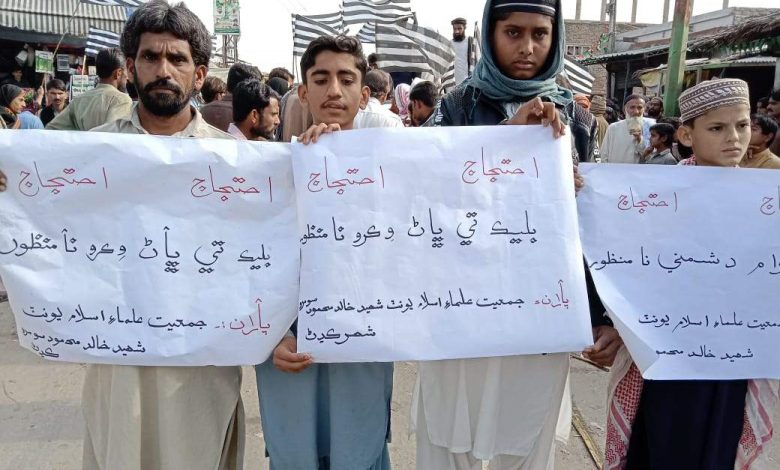 احتجاج احتجاج
بليڪ تي ڀاڻ وڪرو نا منظور
پاران:۔ جمعيت علماءِ اسلام يونٽ
شهيد خالد محمود سومرو
ڪڍڻ
احتجاج احتجاج
بليڪ تي ڀاڻ وڪرو نا منظور
پاران:۔ جمعيت علماءِ اسلام يونٽ شهيد خالد محمود سومرو
شهر ڪڍڻ
احتجاج
دشمني نا منظور
جمعيت علماءِ اسلام يونٽ
شهيد خالد محمود